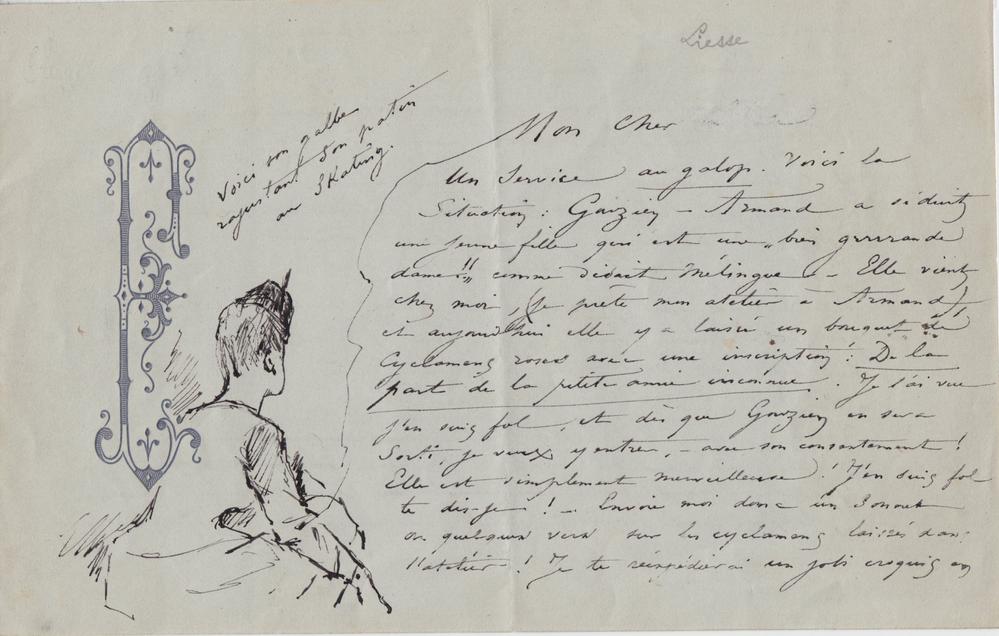 Liesse
Voici son galbe
rajustant son patin
au Skating.
Mon cher
Un Service au galop. Voici la
Situation : Gouzien – Armand a séduit
une jeune fille qui est une "bien grrrrande
dame"!! comme disait Mélingue – Elle vient
chez moi, (je prête mon atelier à Armand)
et aujourd'hui elle y a laissé un bouquet de
Cyclamens roses avec une inscription : De la
part de la petite amie inconnue. Je l'ai vue
j'en suis fol, et dès que Gouzien en sera
Sorti, je veux y entrer, – avec son consentement !
Elle est simplement merveilleuse ! J'en suis fol
te dis-je ! – Envoie moi donc un Sonnet
ou quelques vers sur les cyclamens laissés dans
l'atelier ! Je te réexpédierai un joli croquis en